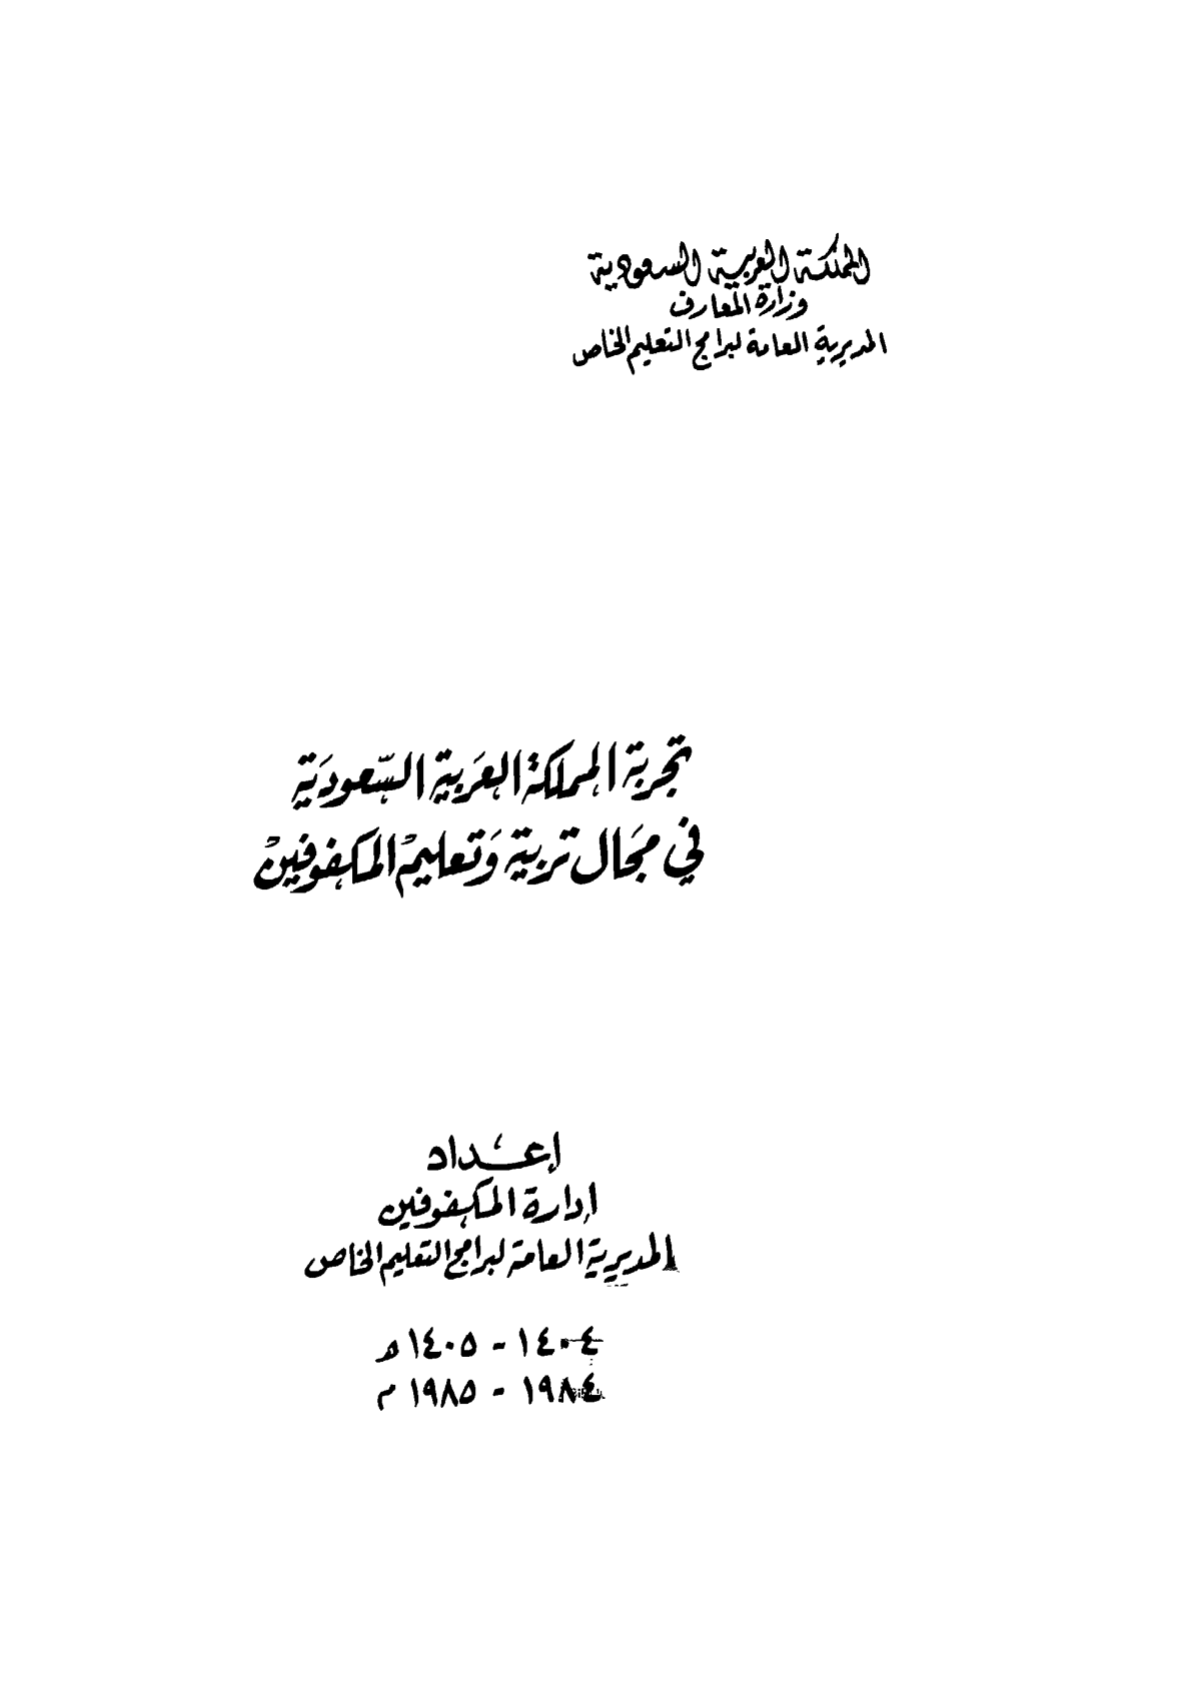 المملكة العربية السعودية
وزارة المعارف
المديرية العامة لبرامج التعليم الخاص
تجربة المملكة العربية السعودية
في مجال تربية وتعليم المكفوفين
إعداد
إدارة المكفوفين
المديرية العامة لبرامج التعليم الخاص
١٤٠٤ - ١٤٠٥ هـ
١٩٨٤ - ١٩٨٥ م